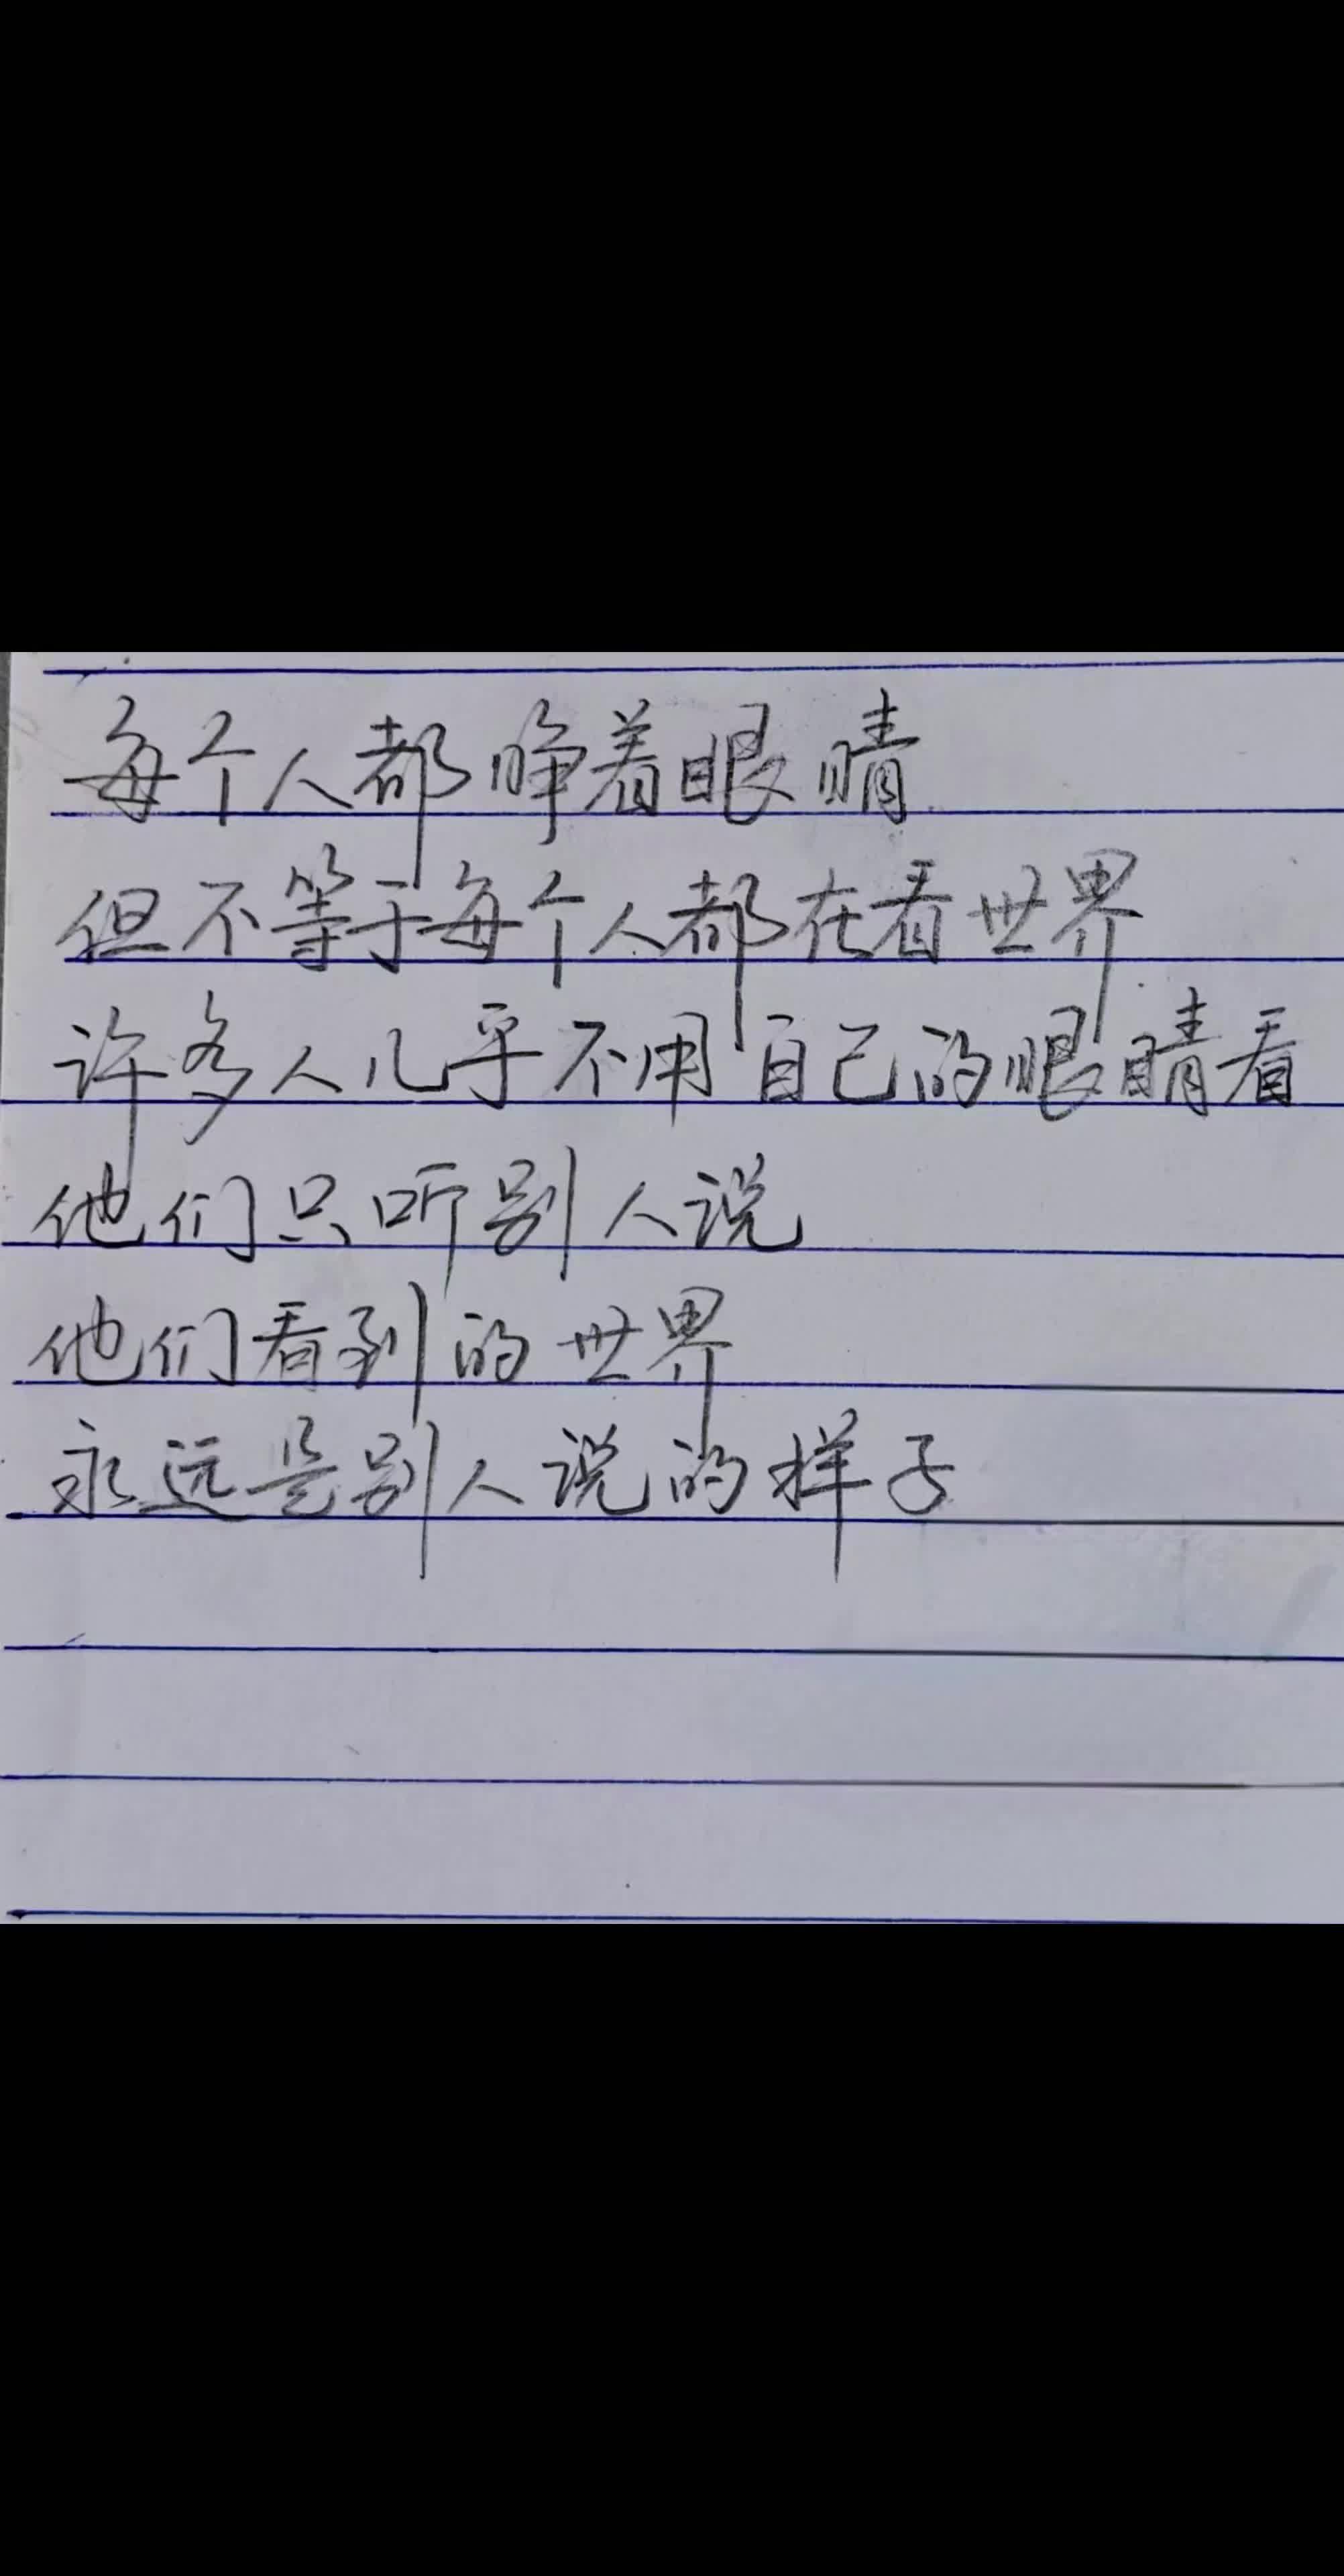 每个人都睁着眼睛
但不等于每个人都在看世界
许多人几乎不用自己的眼睛看
他们只听别人说
他们看到的世界
永远是别人说的样子